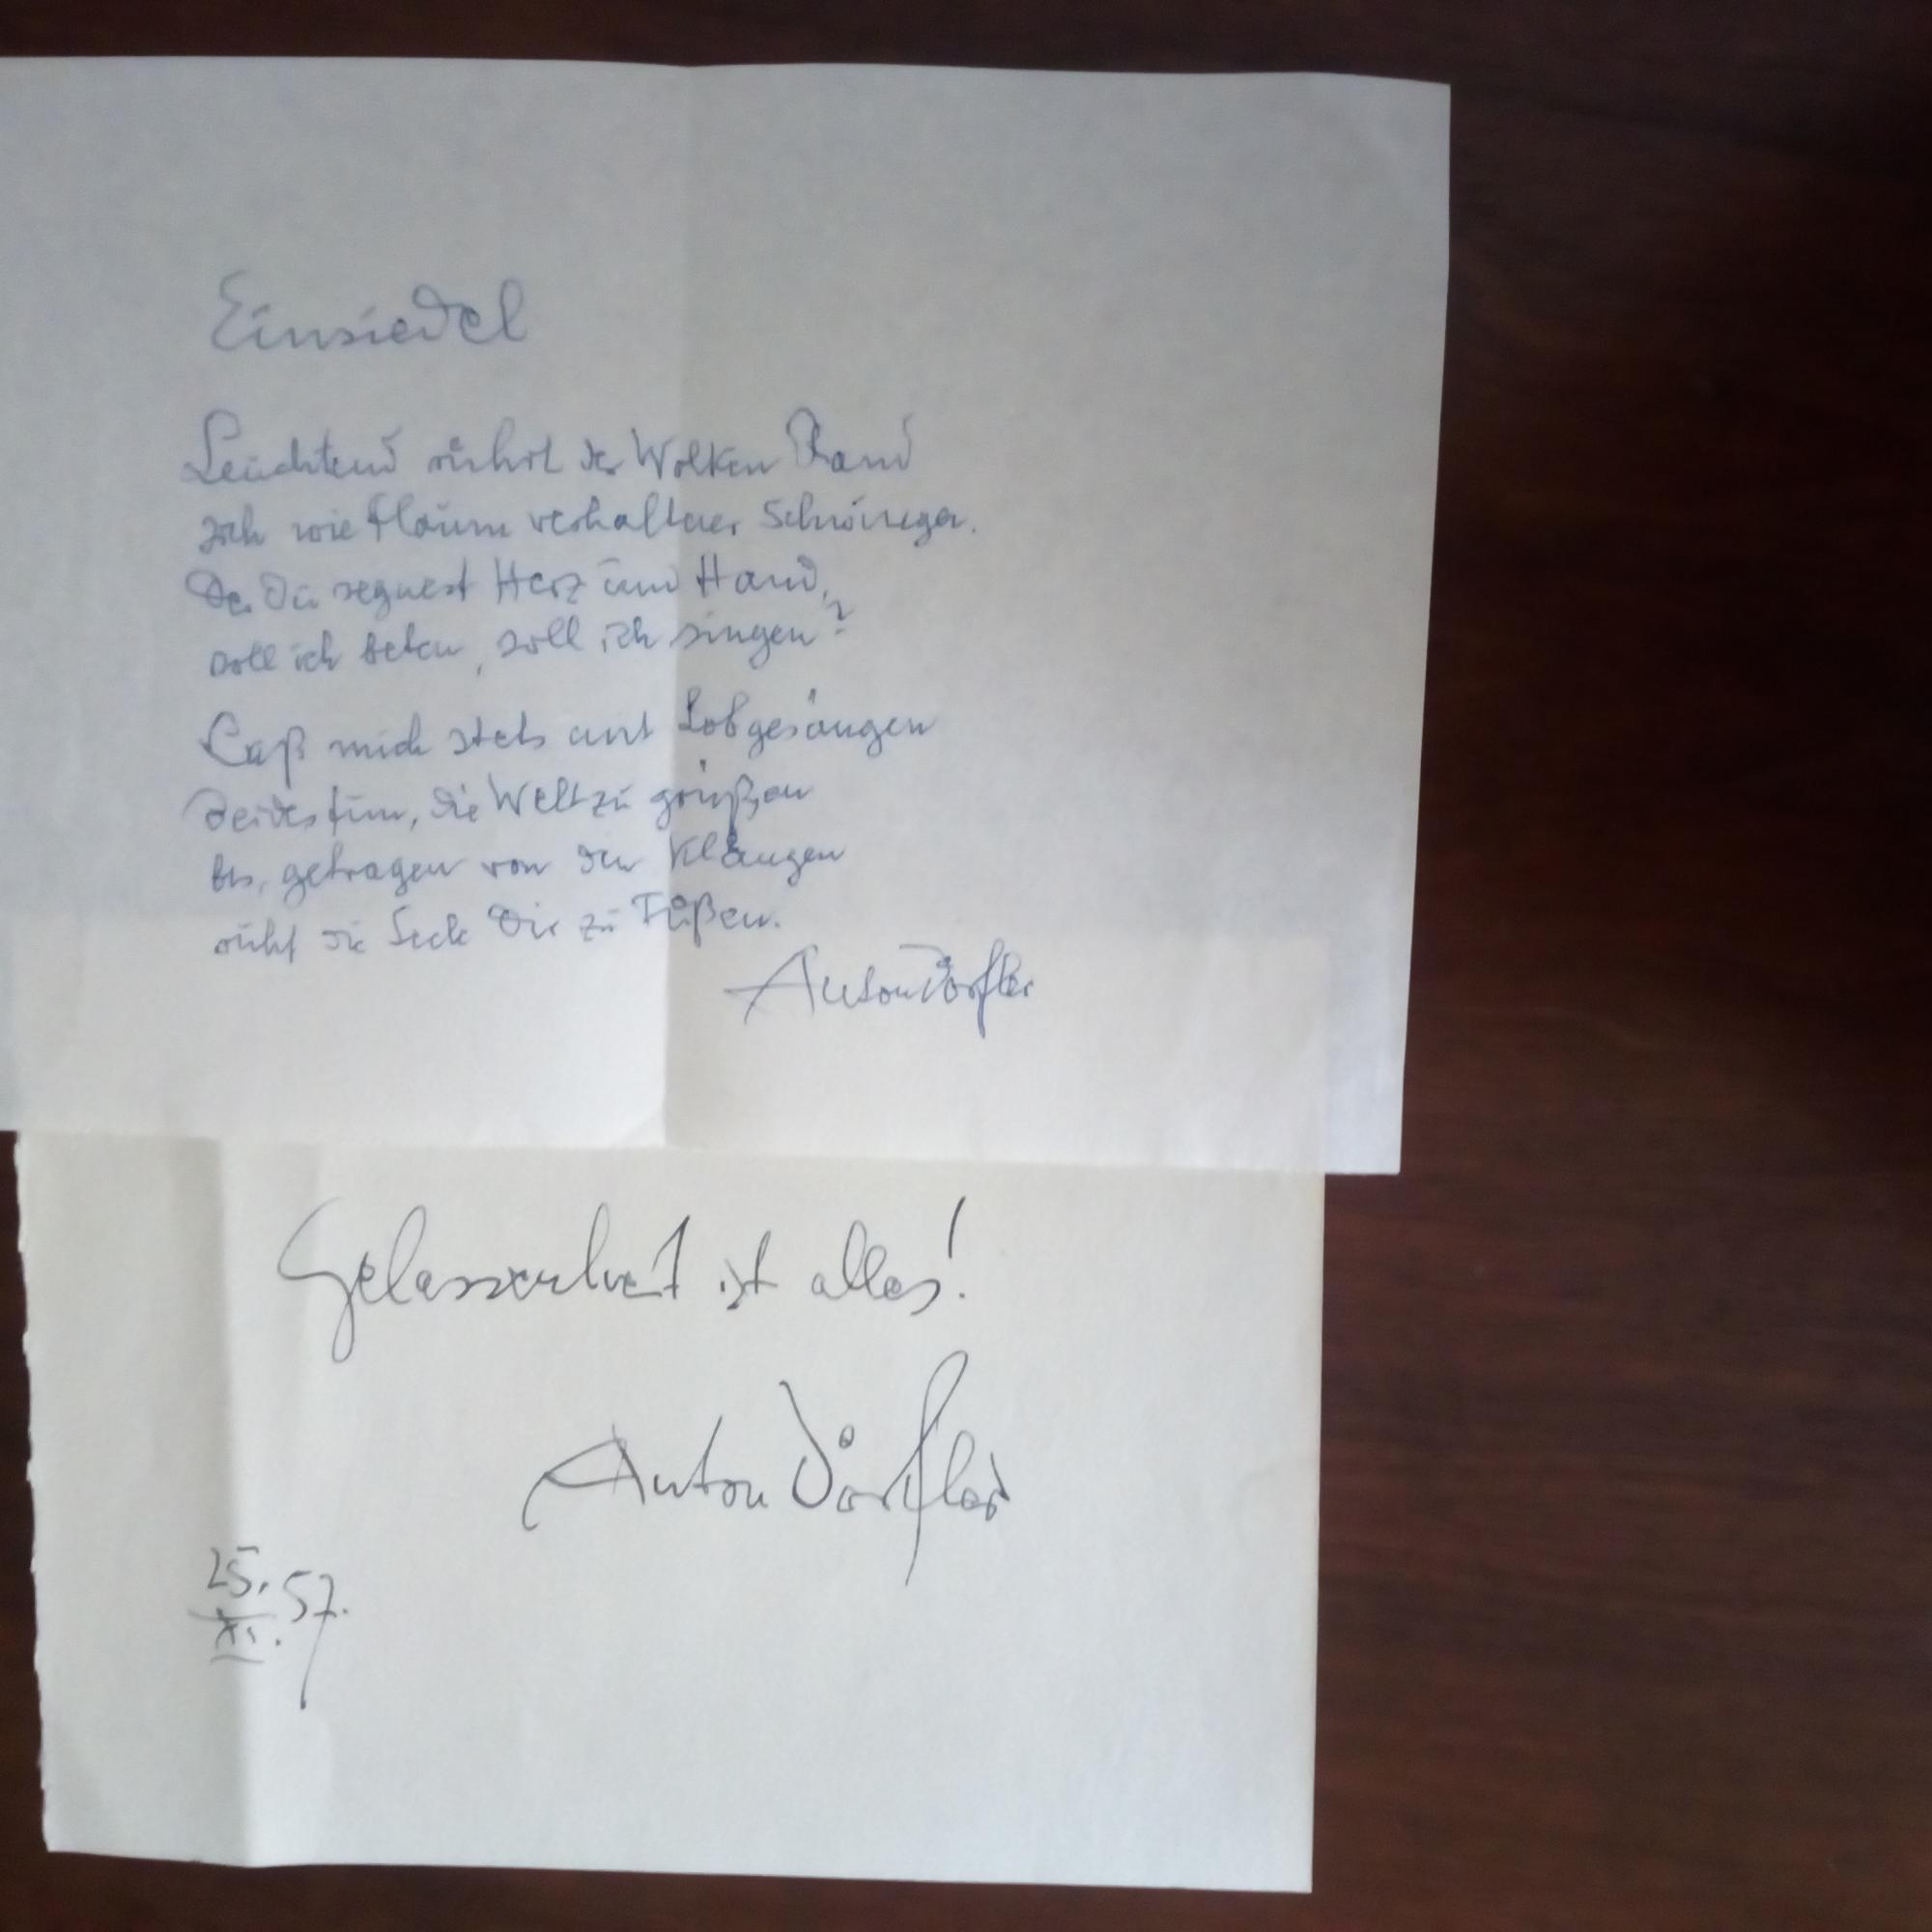 Einsiedel
Leuchtend rührt der Wolken Rand
sich wie Flaum verhaltner Schwingen.
Der Du segnest Herz und Hand,
soll ich beten, soll ich singen?
Laß mich stets mit Lobgesängen
beides tun, die Welt zu grüßen
bis, getragen von den Klängen
ruht die Seele Dir zu Füßen.
Anton Dörfler
Gelassenheit ist alles!
Anton Dörfler
25. XI. 57.